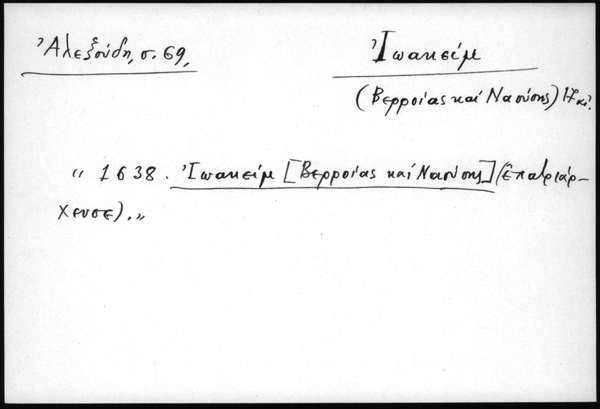 Ἀλεξούδη, σ. 69,
Ἰωακείμ
(Βερροίας καί Ναούσης)
“ 1638. Ἰωακείμ [Βερροίας καί Ναούσης] (ἐπατριάρ-
χευσε).„